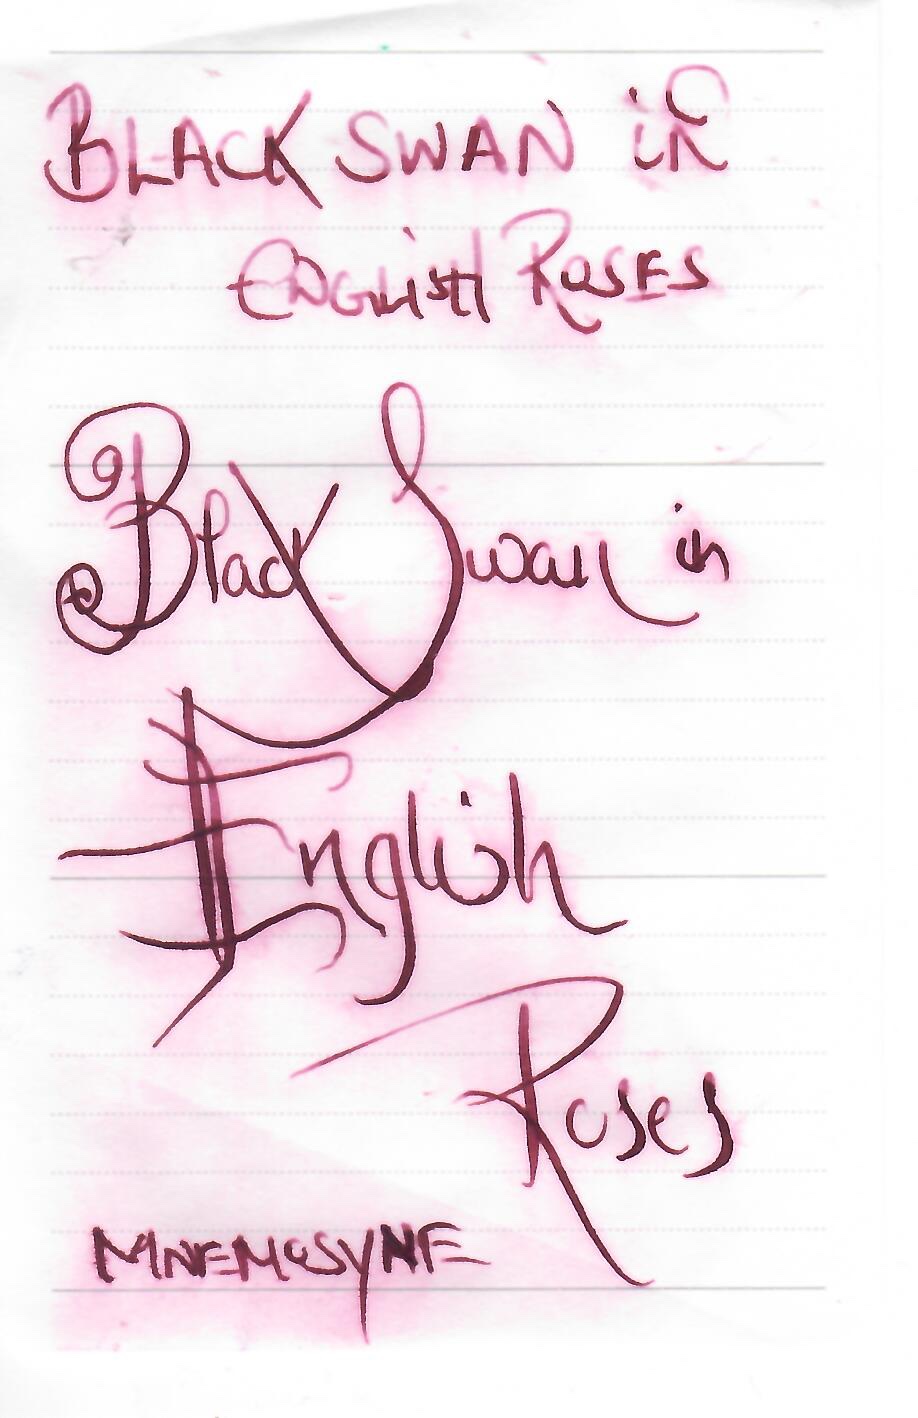 BLACK SWAN in
ENGLISH ROSES
Black Swan in
English
Roses
MNEMOSYNE